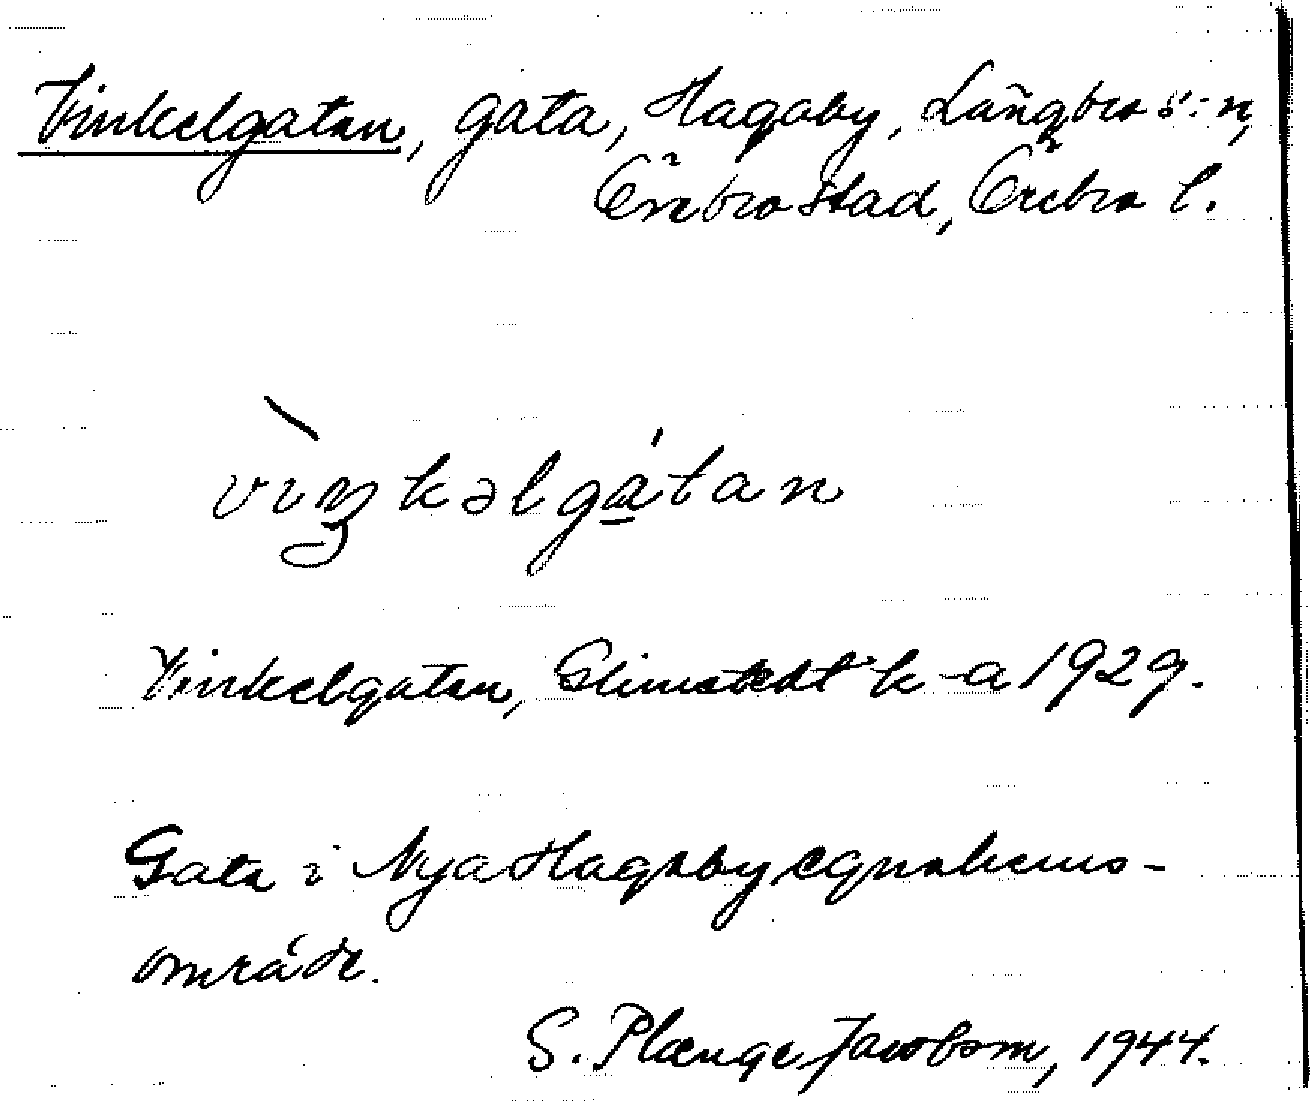 Vinkelgatan, gata, Hagaby, Längbro s:n,
Örebro stad, Örebro l.
vìŋkəlgátan
Vinkelgatan, Glimstedt k-a 1929.
Gata i Nya Hagaby egnahems-
område.
S. Plænge Jacobson, 1944.